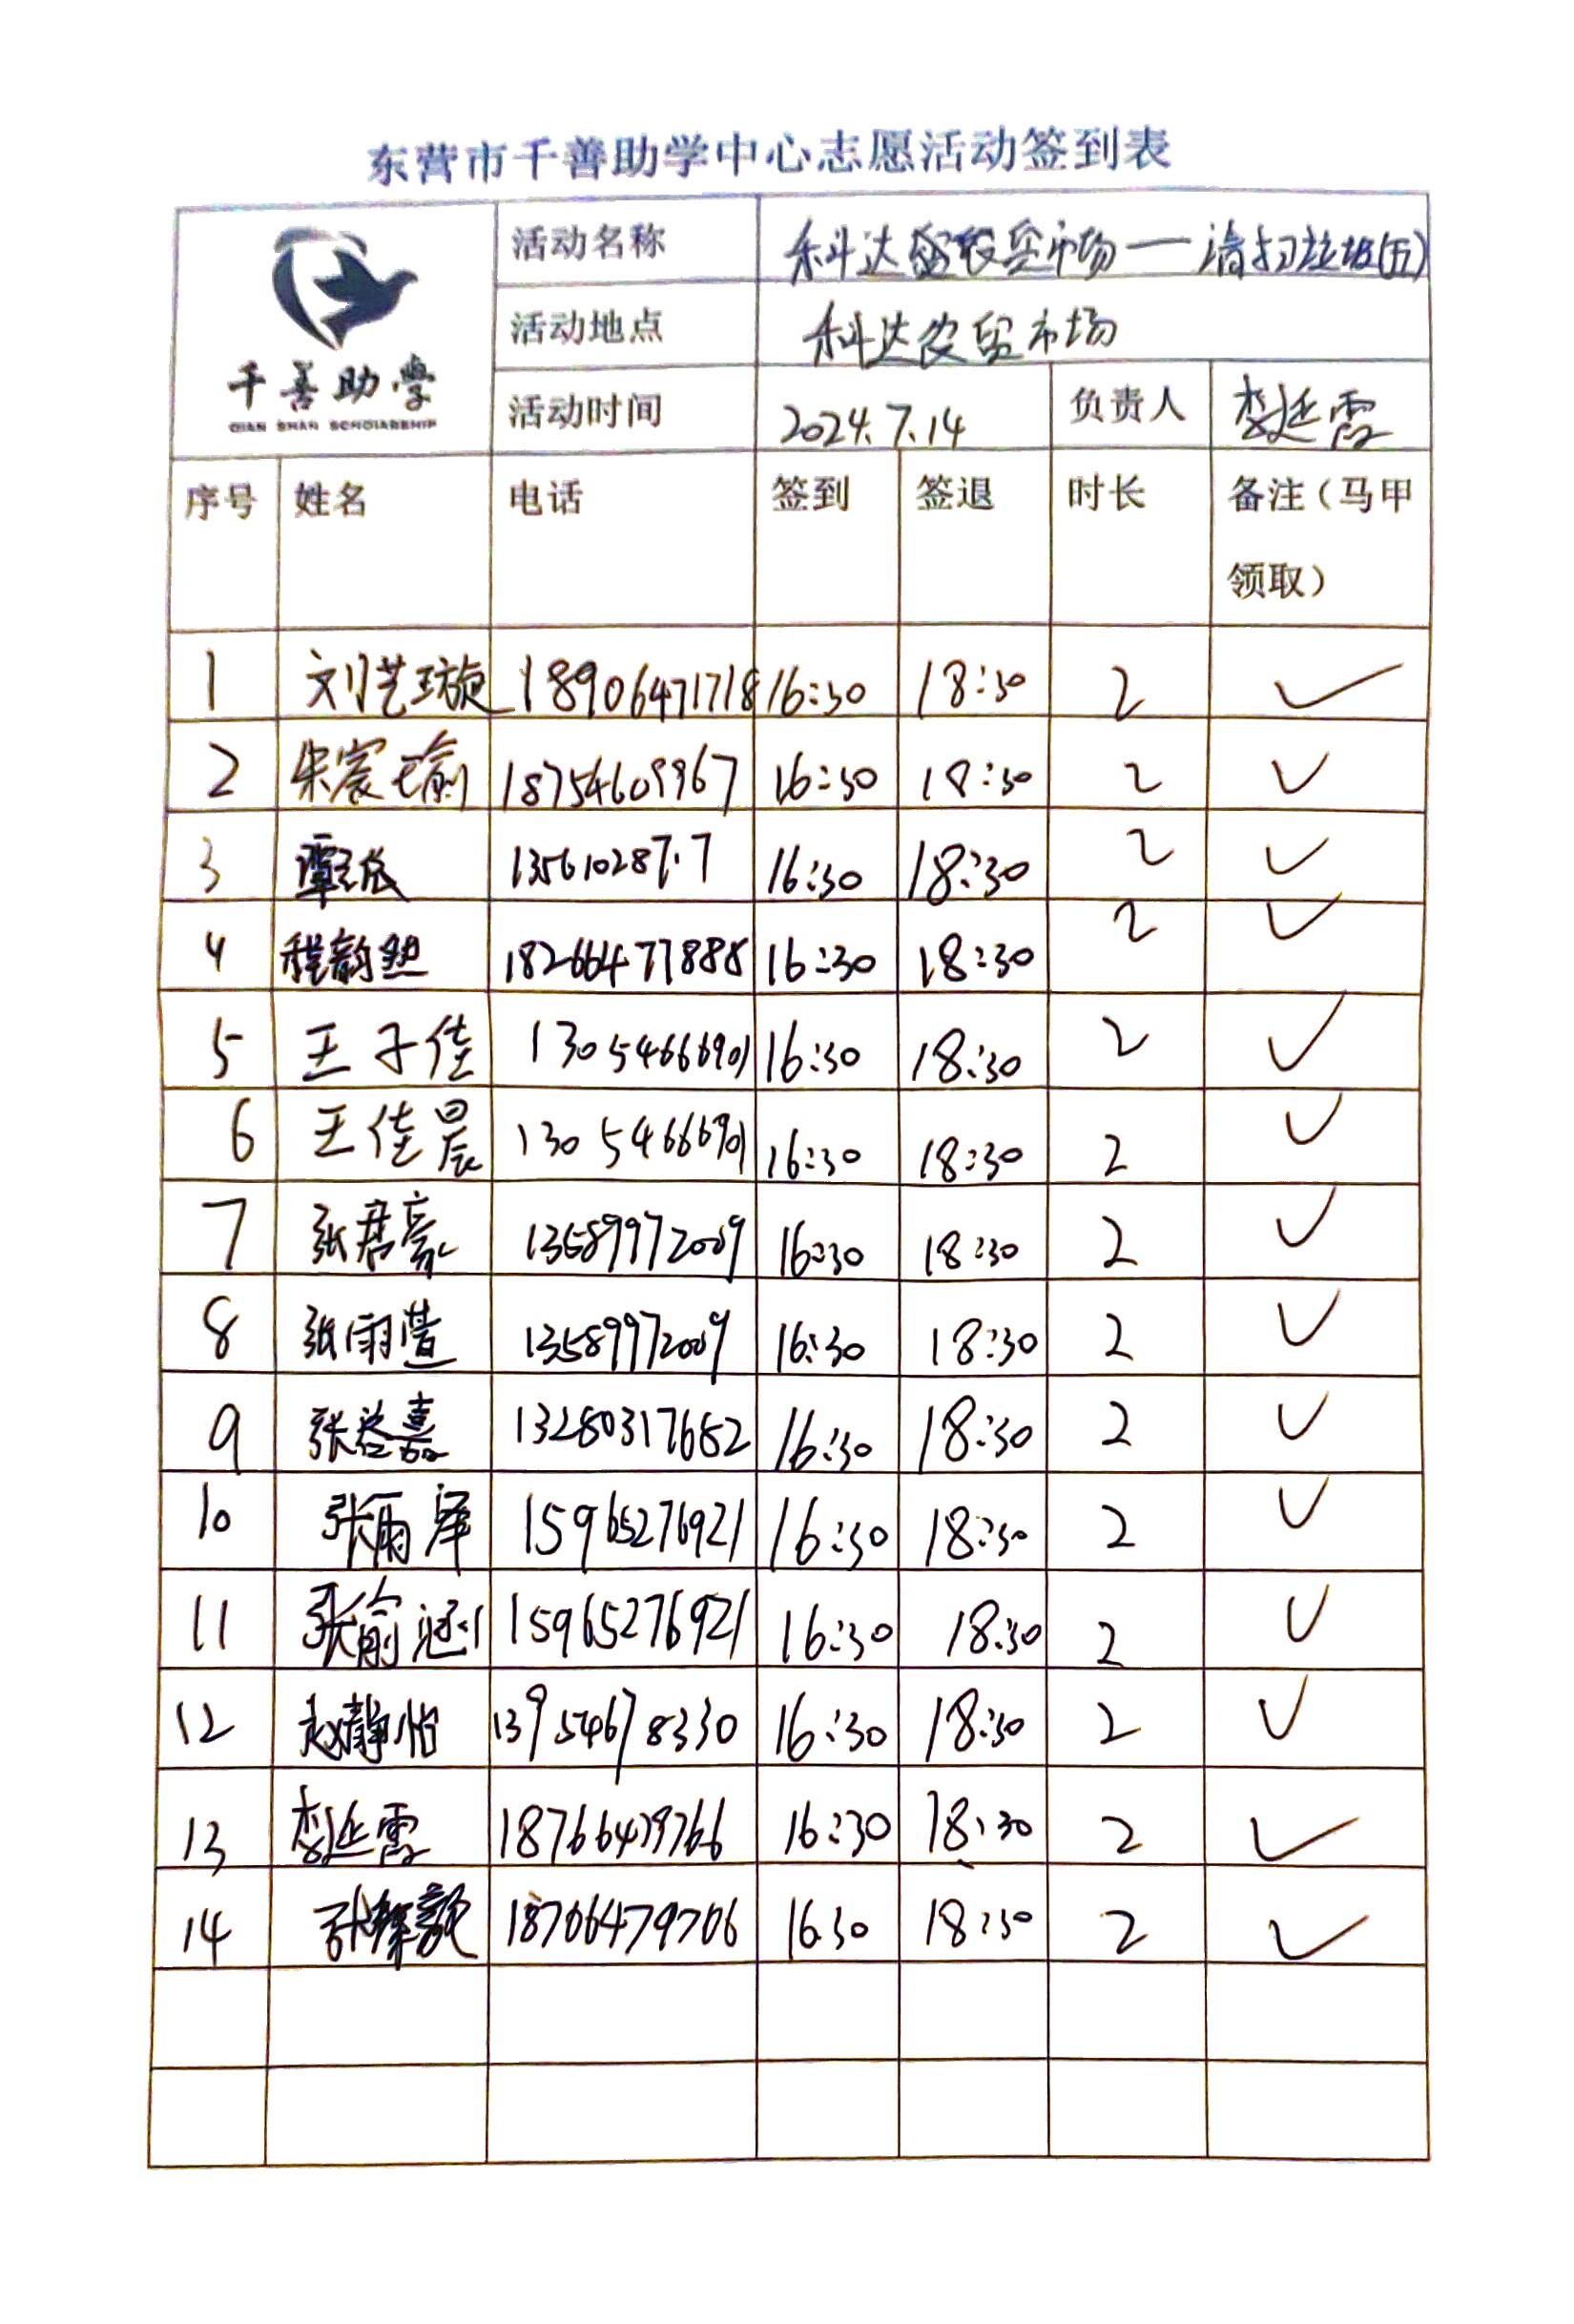 东营市千善助学中心志愿活动签到表
千善助学
QIAN SHAN SCHOLARSHIP
活动名称 科达农贸市场——清扫垃圾(五)
活动地点 科达农贸市场
活动时间 2024.7.14 负责人 李延霞
序号 姓名 电话 签到 签退 时长 备注（马甲领取）
1 刘艺璇 18906471718 16:30 18:30 2 ✓
2 宋宸瑜 18754609967 16:30 18:30 2 ✓
3 16:30 18:30 2 ✓
4 程韵 18266477888 16:30 18:30 2 ✓
5 王子佳 13054666901 16:30 18:30 2 ✓
6 王佳晨 13054666901 16:30 18:30 2 ✓
7 张君豪 13589972009 16:30 18:30 2 ✓
8 张雨萱 13589972009 16:30 18:30 2 ✓
9 张益嘉 13280317682 16:30 18:30 2 ✓
10 张雨泽 15965276921 16:30 18:30 2 ✓
11 张俞涵 15965276921 16:30 18:30 2 ✓
12 赵静怡 13954678330 16:30 18:30 2 ✓
13 李延霞 16:30 18:30 2 ✓
14 张 18706479706 16:30 18:30 2 ✓